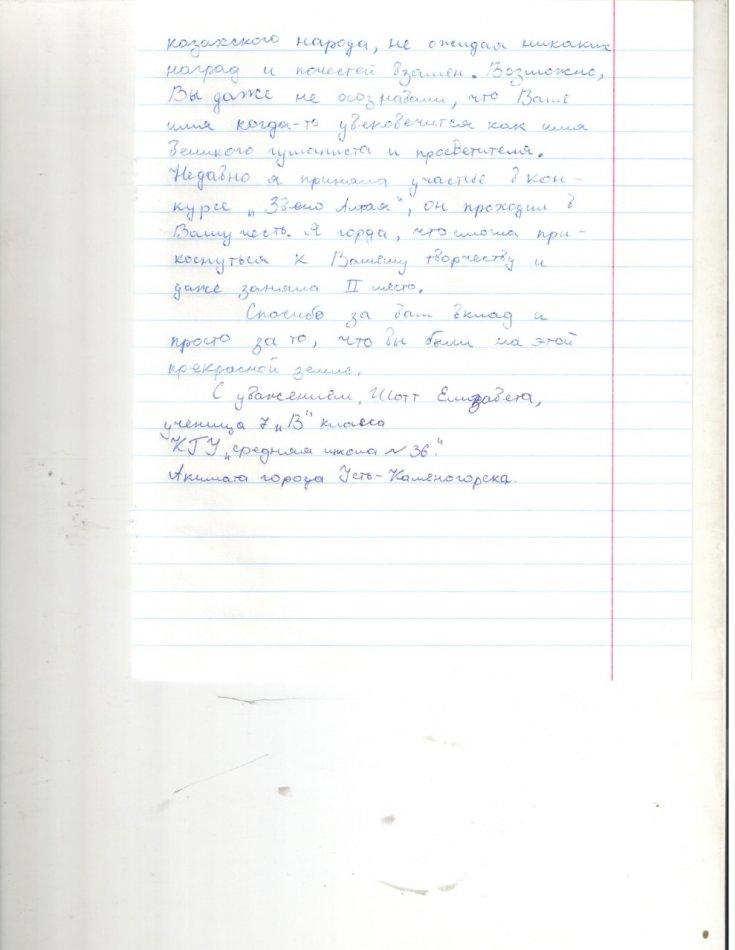 казахского народа, не ожидая никаких
наград и почестей взамен. Возможно,
Вы даже не осознавали, что Ваше
имя когда-то увековечится как имя
великого гуманиста и просветителя.
Недавно я приняла участие в кон-
курсе „Звено Алтая", он проходил в
Вашу честь. Я горда, что смогла при-
коснуться к Вашему творчеству и
даже заняла II место.
Спасибо за вам вклад и
просто за то, что вы были на этой
прекрасной земле.
С уважением, Шотт Елизавета,
ученица 7 „В" класса
"КГУ „средняя школа №36".
Акимата города Усть-Каменогорска.